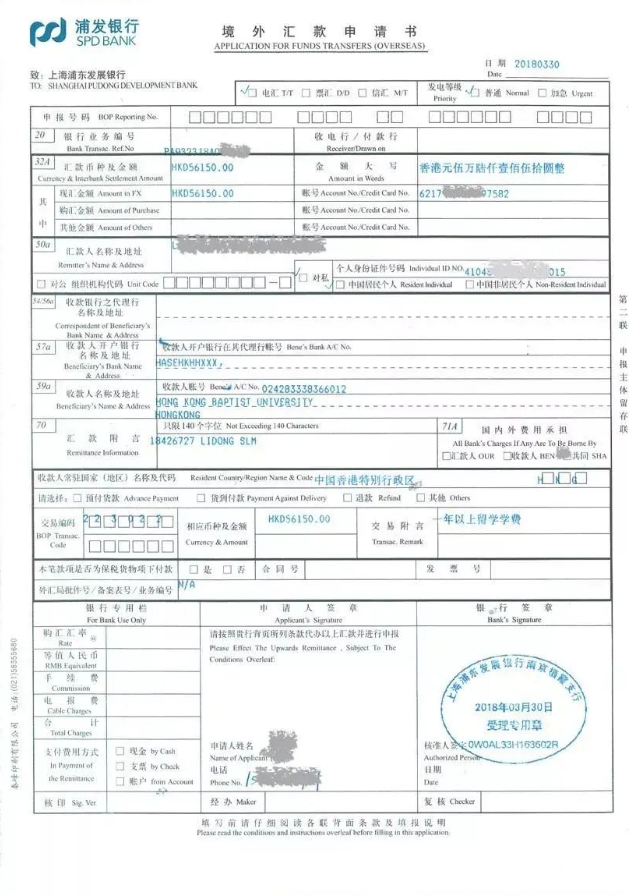 浦发银行
SPD BANK
境外汇款申请书
APPLICATION FOR FUNDS TRANSFERS (OVERSEAS)
日期 20180330
Date
致：上海浦东发展银行
TO: SHANGHAI PUDONG DEVELOPMENT BANK
电汇 T/T 票汇 D/D 信汇 M/T
发电等级 普通 Normal 加急 Urgent
Priority
申报号码 BOP Reporting No.
20 银行业务编号 收电行/付款行
Bank Transac. Ref.No Receiver/Drawn on
32A 汇款币种及金额 HKD56150.00 金额大写 香港元伍万陆仟壹佰伍拾圆整
Currency & Interbank Settlement Amount Amount in Words
其中
现汇金额 Amount in FX HKD56150.00 账号Account No./Credit Card No. 6217 97582
购汇金额 Amount of Purchase 账号Account No./Credit Card No.
其他金额 Amount of Others 账号Account No./Credit Card No.
50a 汇款人名称及地址
Remitter's Name & Address
个人身份证件号码 Individual ID NO. 015
对公 组织机构代码 Unit Code 对私 中国居民个人 Resident Individual 中国非居民个人 Non-Resident Individual
54/56a 收款银行之代理行
名称及地址
Correspondent of Beneficiary's
Bank Name & Address
57a 收款人开户银行 收款人开户银行在其代理行账号 Bene's Bank A/C No.
名称及地址
Beneficiary's Bank Name HASEHKHHXXX,
& Address
59a 收款人账号 Bene's A/C No. 024283338366012
收款人名称及地址
Beneficiary's Name & Address HONG KONG BAPTIST UNIVERSITY
HONGKONG
70 只限140个字位 Not Exceeding 140 Characters 71A 国内外费用承担
汇款附言 18426727 LIDONG SLM All Bank's Charges If Any Are To Be Borne By
Remittance Information 汇款人 OUR 收款人 BEN 共同 SHA
收款人常驻国家（地区）名称及代码 Resident Country/Region Name & Code 中国香港特别行政区 H K G
请选择： 预付货款 Advance Payment 货到付款 Payment Against Delivery 退款 Refund 其他 Others
交易编码 223022 相应币种及金额 HKD56150.00 交易附言 一年以上留学学费
BOP Transac. Code Currency & Amount Transac. Remark
本笔款项是否为保税货物项下付款 是 否 合同号 发票号
外汇局批件号/备案表号/业务编号 N/A
银行专用栏 申请人签章 银行签章
For Bank Use Only Applicant's Signature Bank's Signature
购汇汇率 请按照贵行背页所列条款代办以上汇款并进行申报
Rate Please Effect The Upwards Remittance , Subject To The
等值人民币 Conditions Overleaf:
RMB Equivalent
手续费
Commission
电报费
Cable Charges
合计
Total Charges
支付费用方式 现金 by Cash
In Payment of 支票 by Check
the Remittance 账户 from Account
申请人姓名
Name of Applicant
电话
Phone No.
2018年03月30日
受理专用章
核准人签字
Authorized Person
日期
Date
核印 Sig. Ver 经办 Maker 复核 Checker
填写前请仔细阅读各联背面条款及填报说明
Please read the conditions and instructions overleaf before filling in this application.
第二联 申报主体留存联